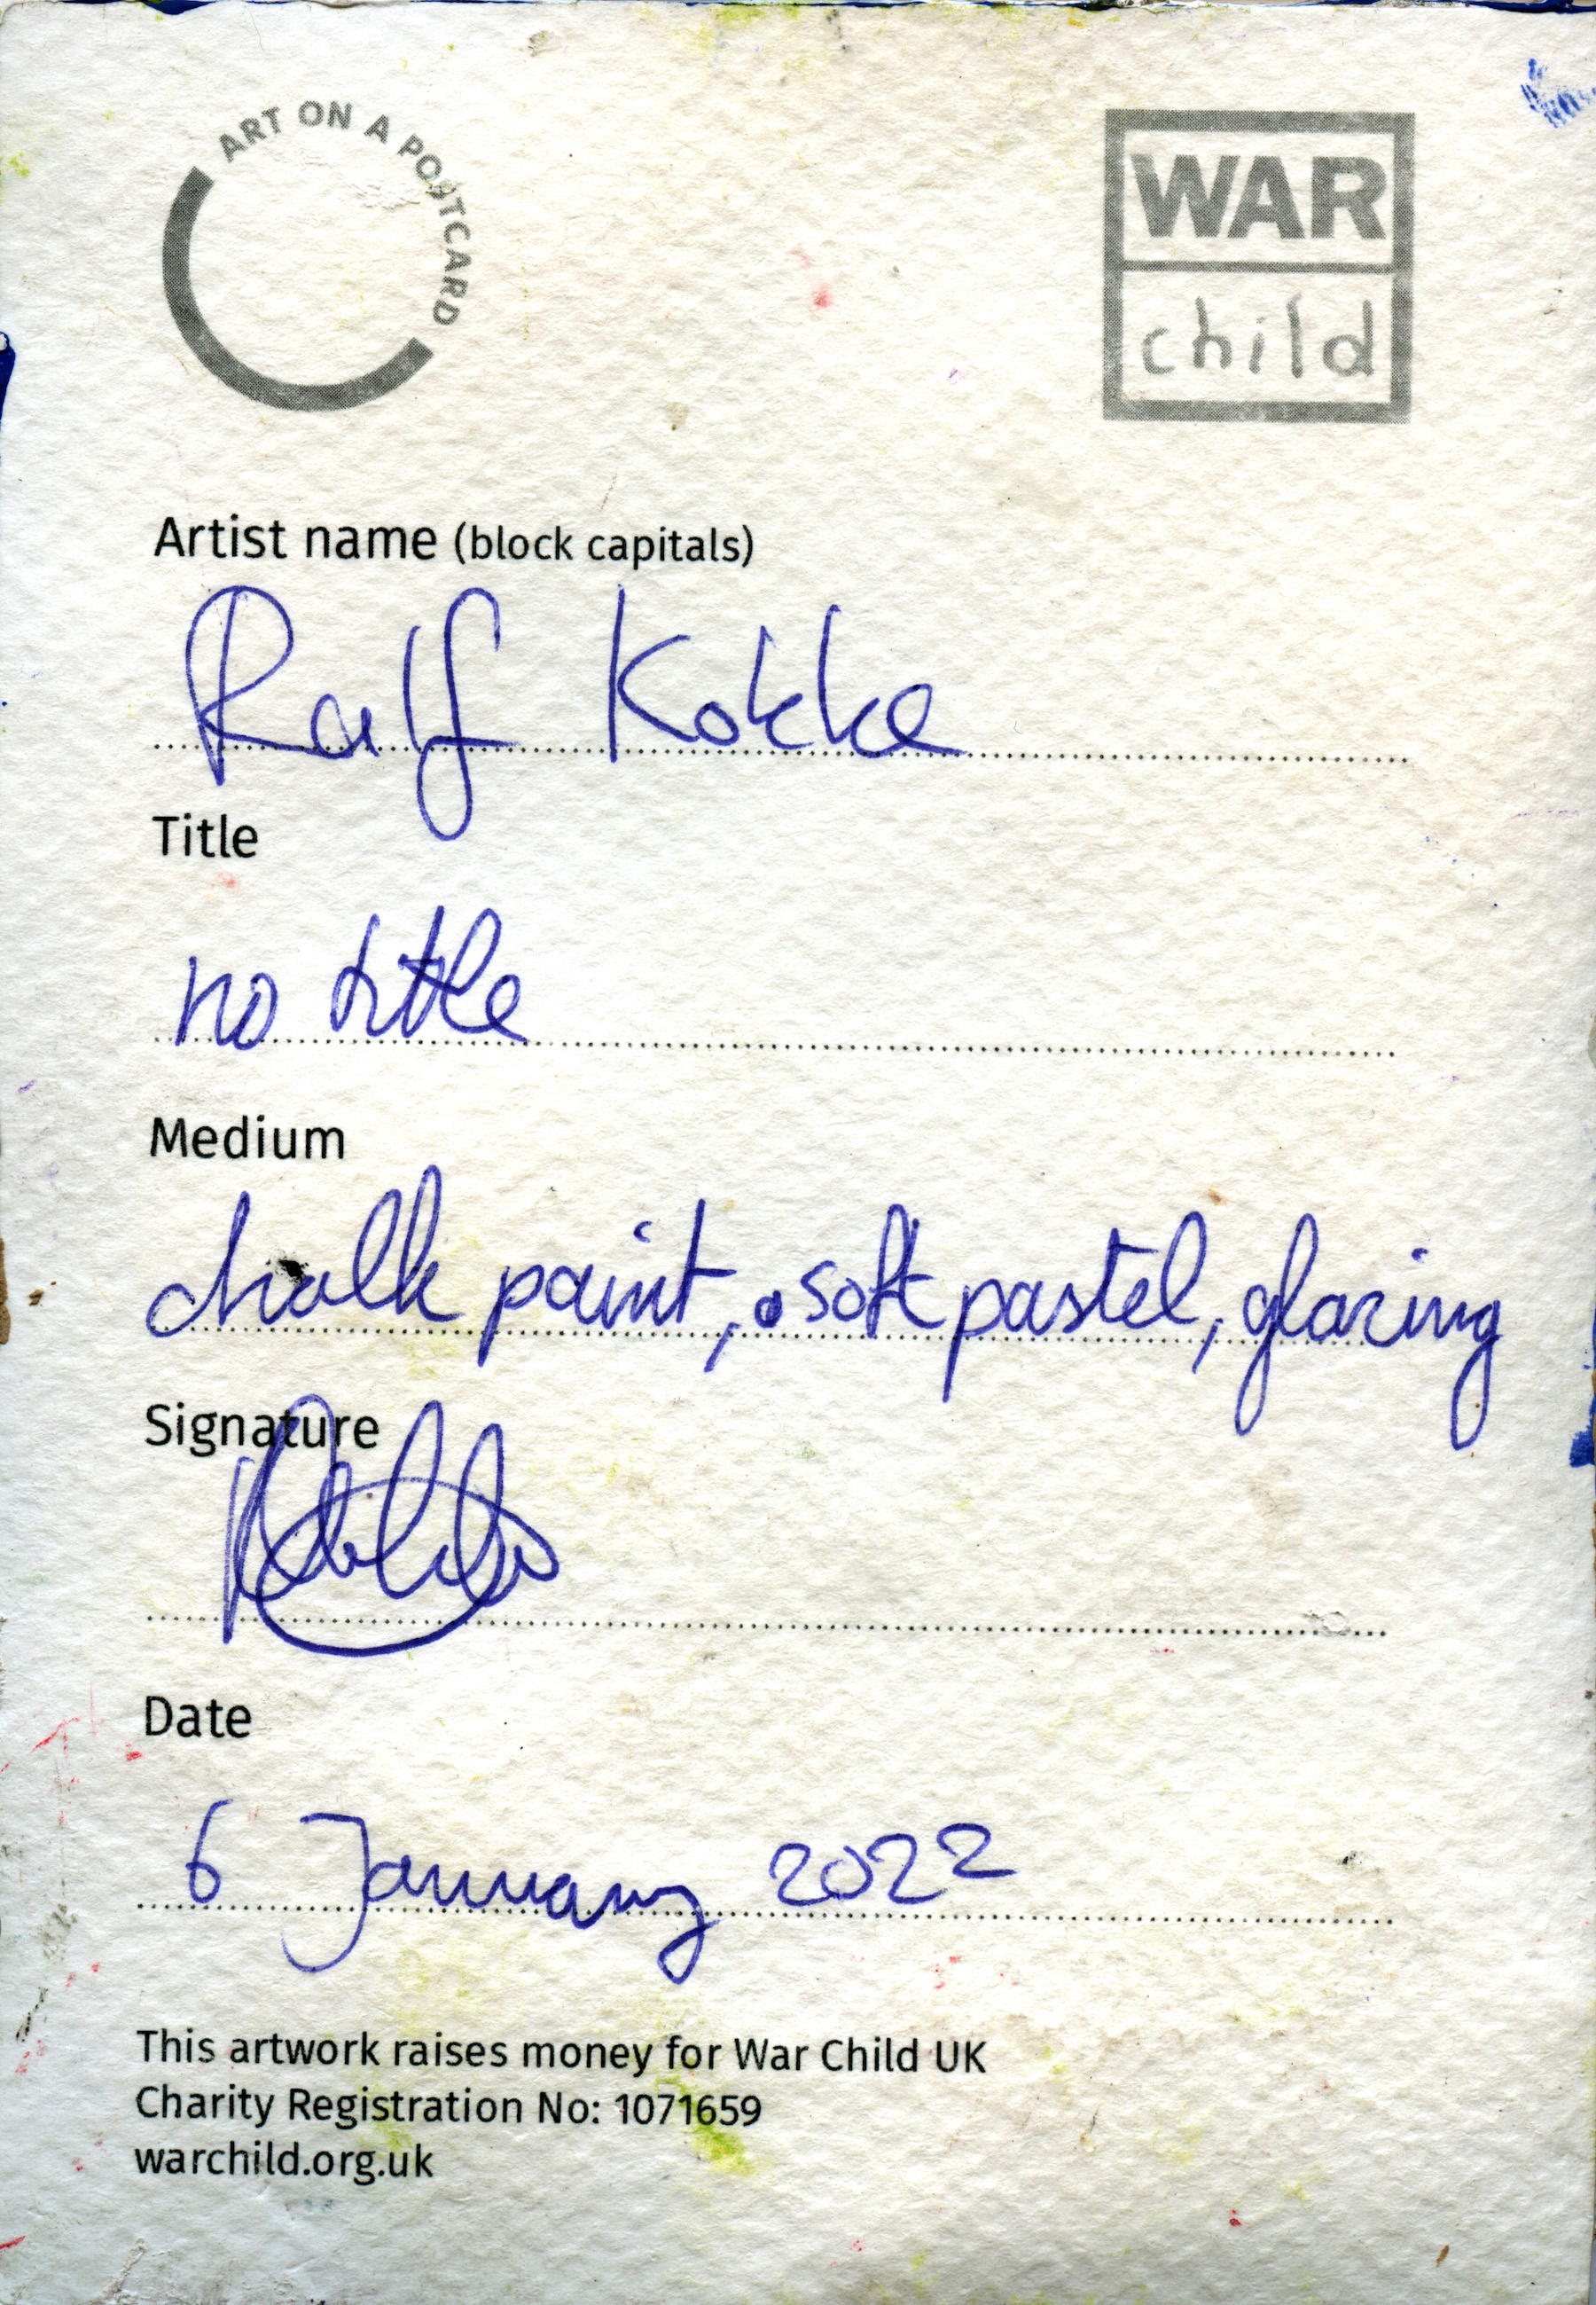 ART ON A POSTCARD
WAR
child
Artist name (block capitals)
Ralf Kokke
Title
no title
Medium
chalk paint, soft pastel, glazing
Signature
Date
6 January 2022
This artwork raises money for War Child UK
Charity Registration No: 1071659
warchild.org.uk